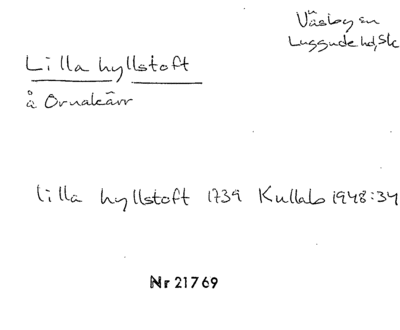 Väsby sn
Luggude hd, Sk
Lilla hyllstoft
å Ornakärr
lilla hyllstoft 1739 Kullab 1948:34
Nr 21769